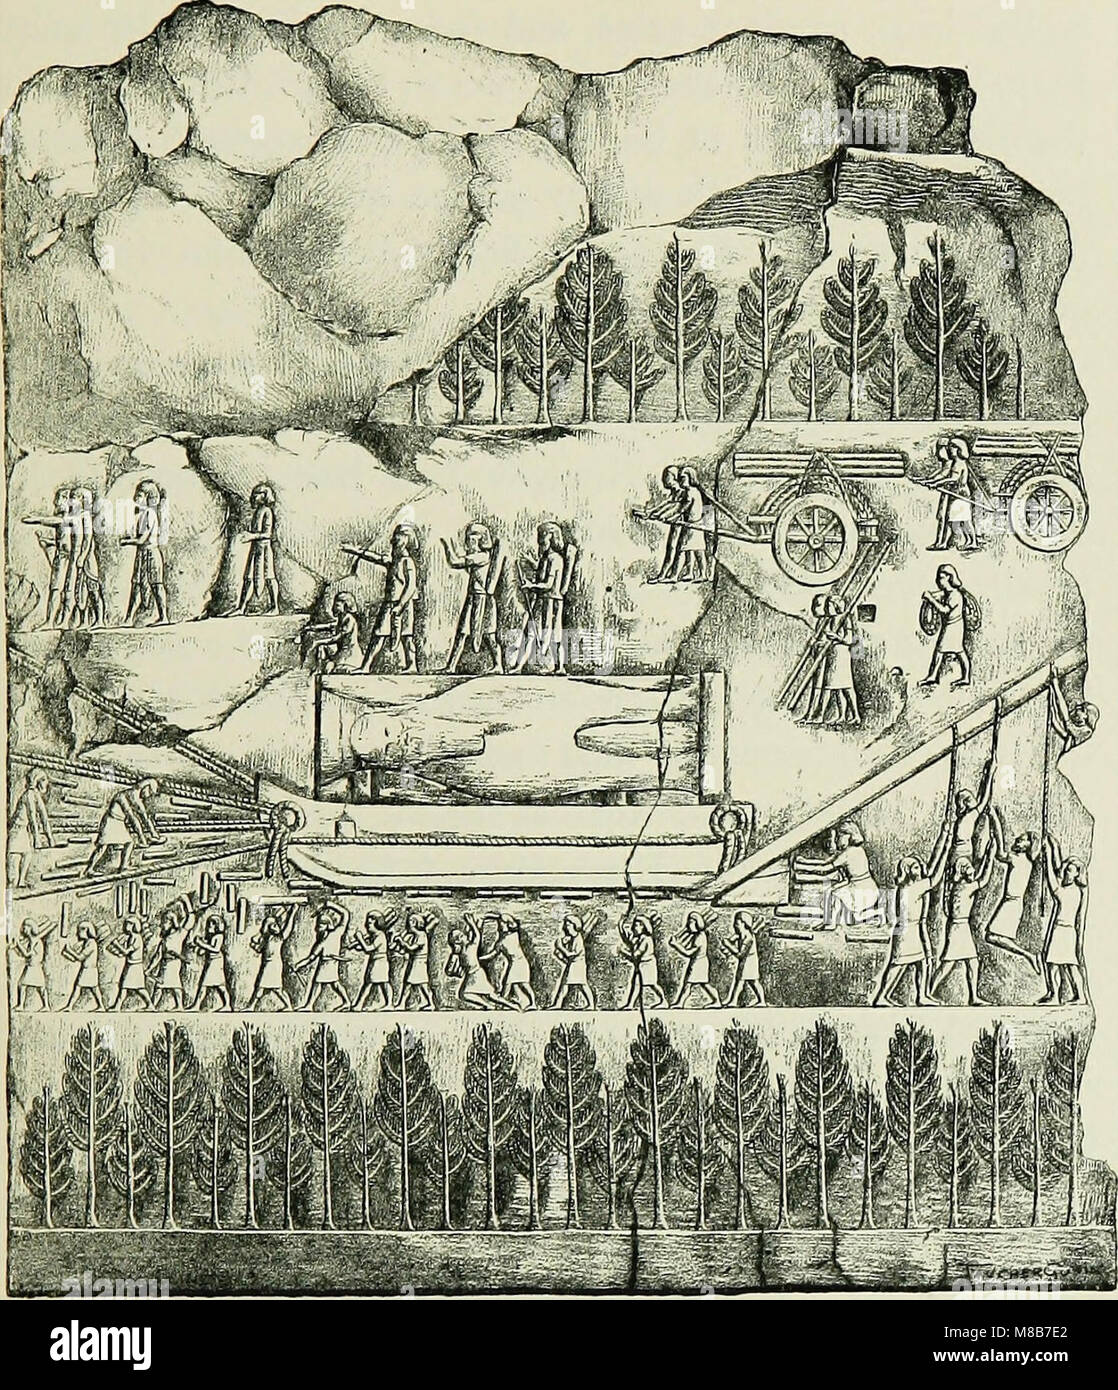 a
a
a
a
a
a
alamy
alamy
alamy
alamy
Image ID: M8B7E2
www.alamy.com